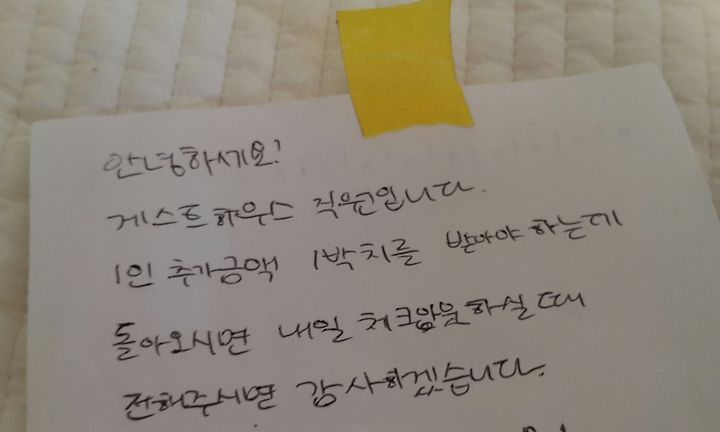 안녕하세요!
게스트하우스 직원입니다.
1인 추가금액 1박치를 받아야 하는데
돌아오시면 내일 체크아웃하실때
전해주시면 감사하겠습니다.